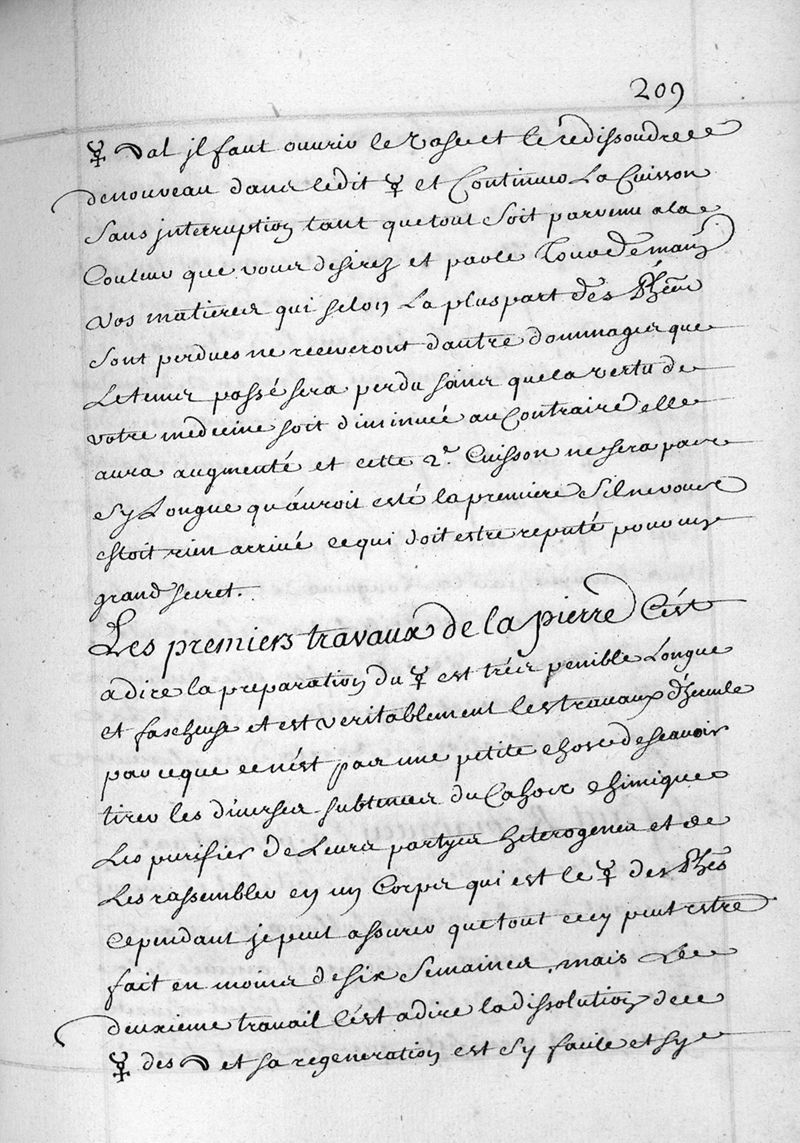 209
☿ al jl faut ouvrir le vase et le redissoudre
de nouveau dans ledit ☿ et Continuer La Cuisson
Sans jnterruption tant que tout Soit parvenu a la
Couleur que vous desirez et par le
vos matieres qui selon La pluspart des Ph̃es
Sont perdues ne receveront dautre dommages que
Le tems passé sera perdu sans que la vertu de
votre medecine soit diminuée au Contraire elle
aura augmenté et cette 2.e Cuisson ne sera pas
sy Longue qu'auroit esté la premiere Sil ne vous
estoit rien arrivé ce qui doit estre reputé pour un
grand secret.
Les premiers travaux de la pierre C'est
a dire la preparation du ☿ est trés penible Longue
et fascheuse et est veritablement les travaux d'hercule
par ce que ce n'est pas une petite chose de scavoir
tirer les diverses substances du Cahos chimique
Les purifier de Leurs partyes heterogenes et de
Les rassembler en un Corps qui est le ☿ des Ph̃es
Cependant je peut assurer que tout cecy peut estre
fait en moins de six Semaines, mais Le
deuxieme travail C'est a dire la dissolution de ce
☿ des et sa regeneration est sy facile et sy